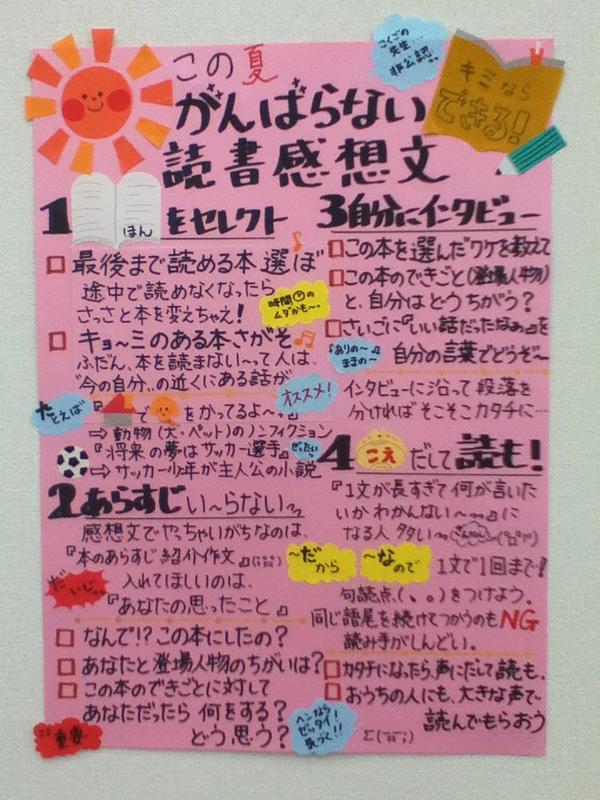 この夏
がんばらない
読書感想文
こくごの
先生…
非公認。
キミなら
できる!
1 ほん をセレクト
最後まで読める本 選ぼ
途中で読めなくなったら
さっさと本を変えちゃえ!
時間の
ムダかも〜。
キョーミのある本さがそ
ふだん、本を読まない〜って人は、
"今の自分"の近くにある話が
オススメ!
たとえば
『 で をかってるよ〜』
⇒動物(犬・ペット)のノンフィクション
『将来の夢はサッカー選手』
ぜったい
⇒サッカー少年が主人公の小説
2 あらすじ い〜らない〜
感想文でやっちゃいがちなのは、
『本のあらすじ紹介作文』
だいじ〜
入れてほしいのは、
『あなたの思ったこと』
なんで!?この本にしたの?
あなたと登場人物のちがいは?
この本のできごとに対して
あなただったら何をする?
どう思う?
重要
3 自分にインタビュー
この本を選んだワケを教えて
この本のできごと(登場人物)
と、自分はどうちがう?
さいごに『いい話だったなぁ』を
『ありの〜
ままの〜』
自分の言葉でどうぞ〜
インタビューに沿って段落を
分ければそこそこカタチに…
4 こえ だして読も!
『1文が長すぎて何が言いた
いかわかんない〜』に
なる人 タタい〜
〜だから 〜なので 1文で1回まで!
句読点(、。)をつけよう。
同じ語尾を続けてつかうのもNG
読み手がしんどい。
カタチになったら、声にだして読も。
おうちの人にも、大きな声で
読んでもらおう
ヘンなら
ゼッタイ!
気づく!!